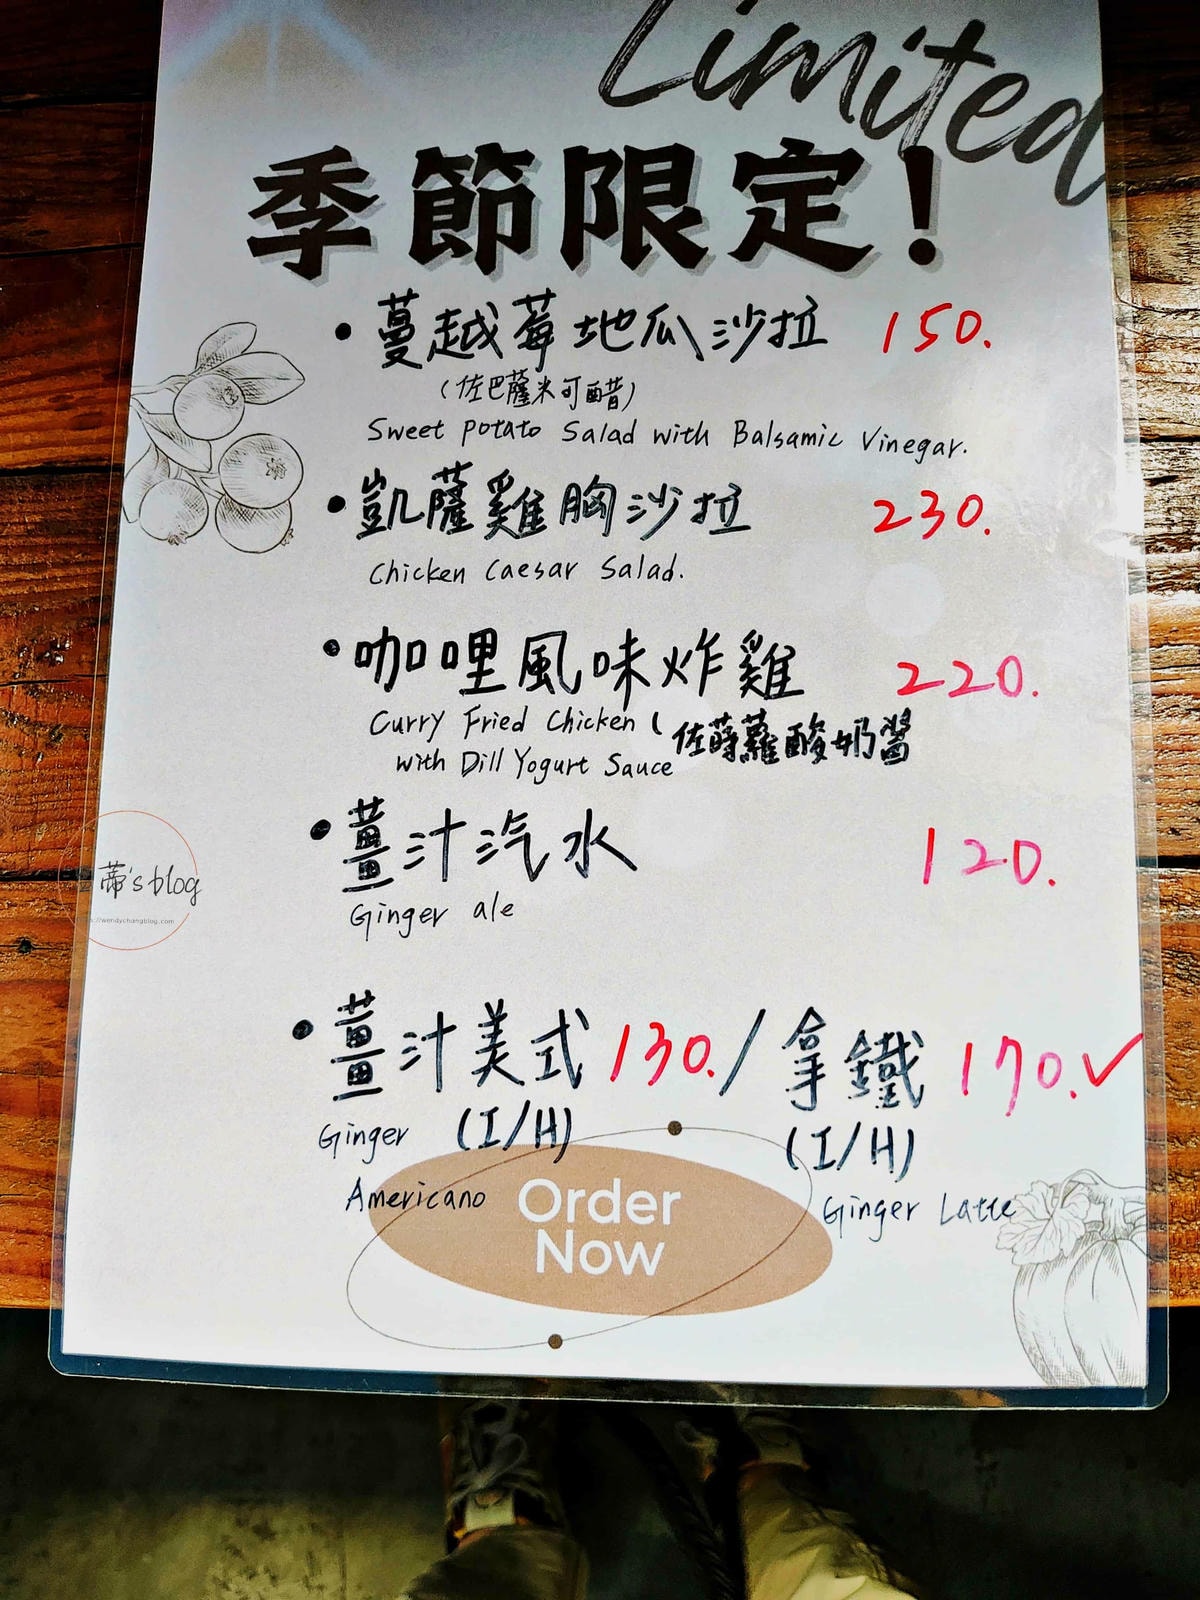 Limited
季節限定!
• 蔓越莓地瓜沙拉 150.
(佐巴薩米可醋)
Sweet potato Salad with Balsamic Vinegar.
• 凱薩雞胸沙拉 230.
Chicken Caesar Salad.
• 咖哩風味炸雞 220.
Curry Fried Chicken (佐蒔蘿酸奶醬
with Dill Yogurt Sauce
• 薑汁汽水 120.
Ginger ale
蒂's blog
s://wendychangblog.com
• 薑汁美式 130./拿鐵 170.✓
Ginger (I/H) (I/H)
Americano Ginger Latte
Order
Now